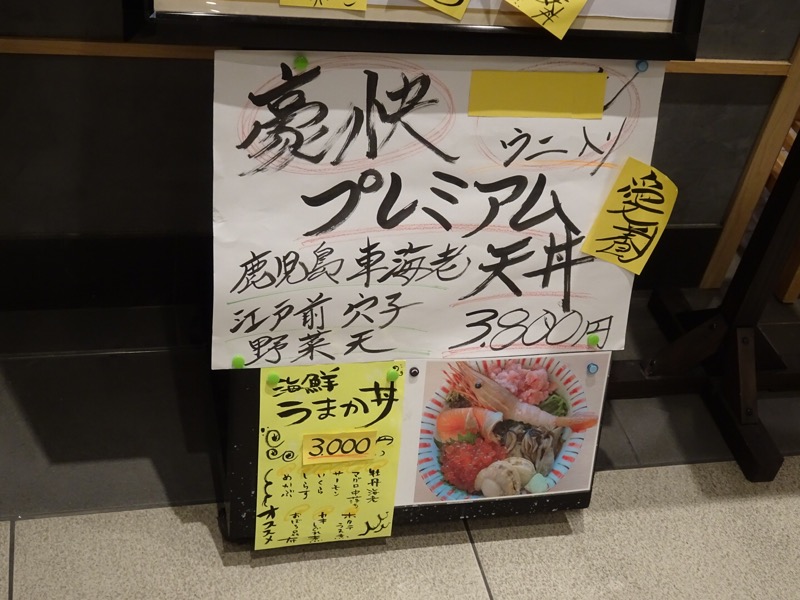 豪快
ウニ入り
プレミアム
天丼
鹿児島 車海老
江戸前 穴子
野菜天
3,800円
海鮮
うまか丼
3,000円
牡丹海老
マグロ中落ち
サーモン
いくら
しらす
めかぶ
ホタテ
オススメ